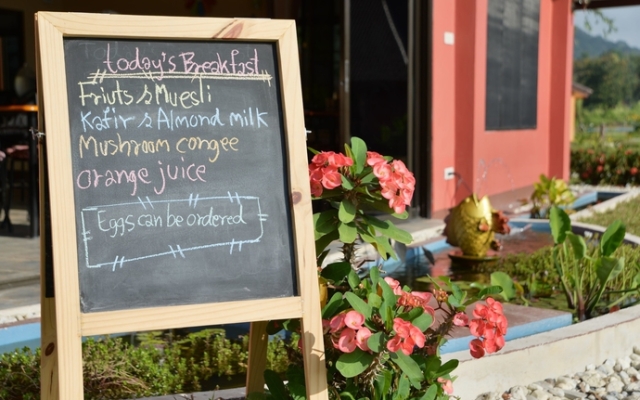 today's Breakfast
Friuts & Muesli
Kafir & Almond milk
Mushroom congee
orange juice
Eggs can be ordered